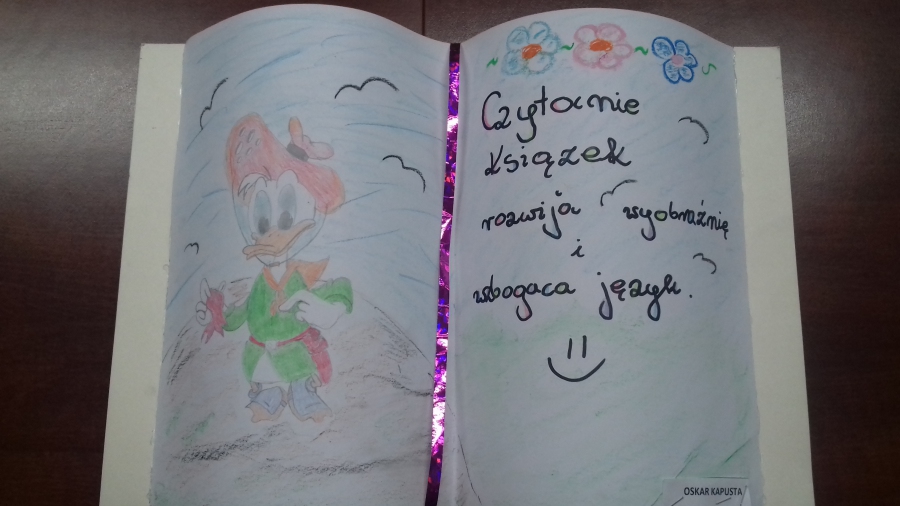 Czytanie
książek
rozwija wyobraźnię
i
wzbogaca język.
OSKAR KAPUSTA